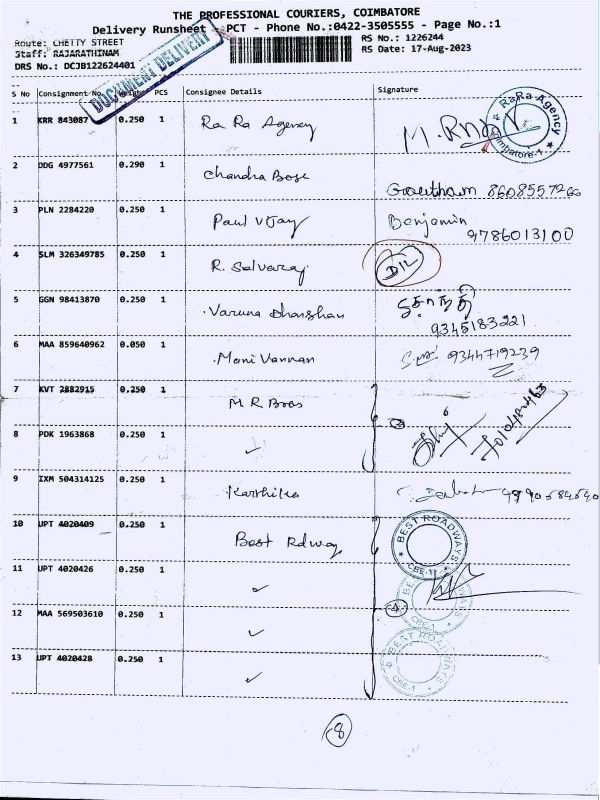 THE PROFESSIONAL COURIERS, COIMBATORE
Delivery Runsheet - PCT - Phone No.:0422-3505555 - Page No.:1
Route: CHETTY STREET
RS No.: 1226244
Staff: RAJARATHINAM
RS Date: 17-Aug-2023
DRS No.: DCJB122624401
DOCUMENT DELIVERY
S No Consignment No. Weight PCS Consignee Details Signature
1 KRR 843087 0.250 1 Ra Ra Agency
RaRa Agency
Coimbatore-1
2 DDG 4977561 0.290 1 Chandra Bose Gowtham
3 PLN 2284220 0.250 1 Paul Vijay Benjamin 9786013100
4 SLM 326349785 0.250 1 R. Selvaraj DIL
5 GGN 98413870 0.250 1 Varuna Dharshan 9345183221
6 MAA 859640962 0.050 1 Mani Vannan 9344719239
7 KVT 2882915 0.250 1 M R Bros
2
8 PDK 1963868 0.250 1 ✓
9 IXM 504314125 0.250 1 Karthika
10 UPT 4020409 0.250 1 Best Rdway
BEST ROADWAYS
CBE-1
11 UPT 4020426 0.250 1 ✓
4
12 MAA 569503610 0.250 1 ✓
13 UPT 4020428 0.250 1 ✓
BEST ROADWAYS
CBE-1
8